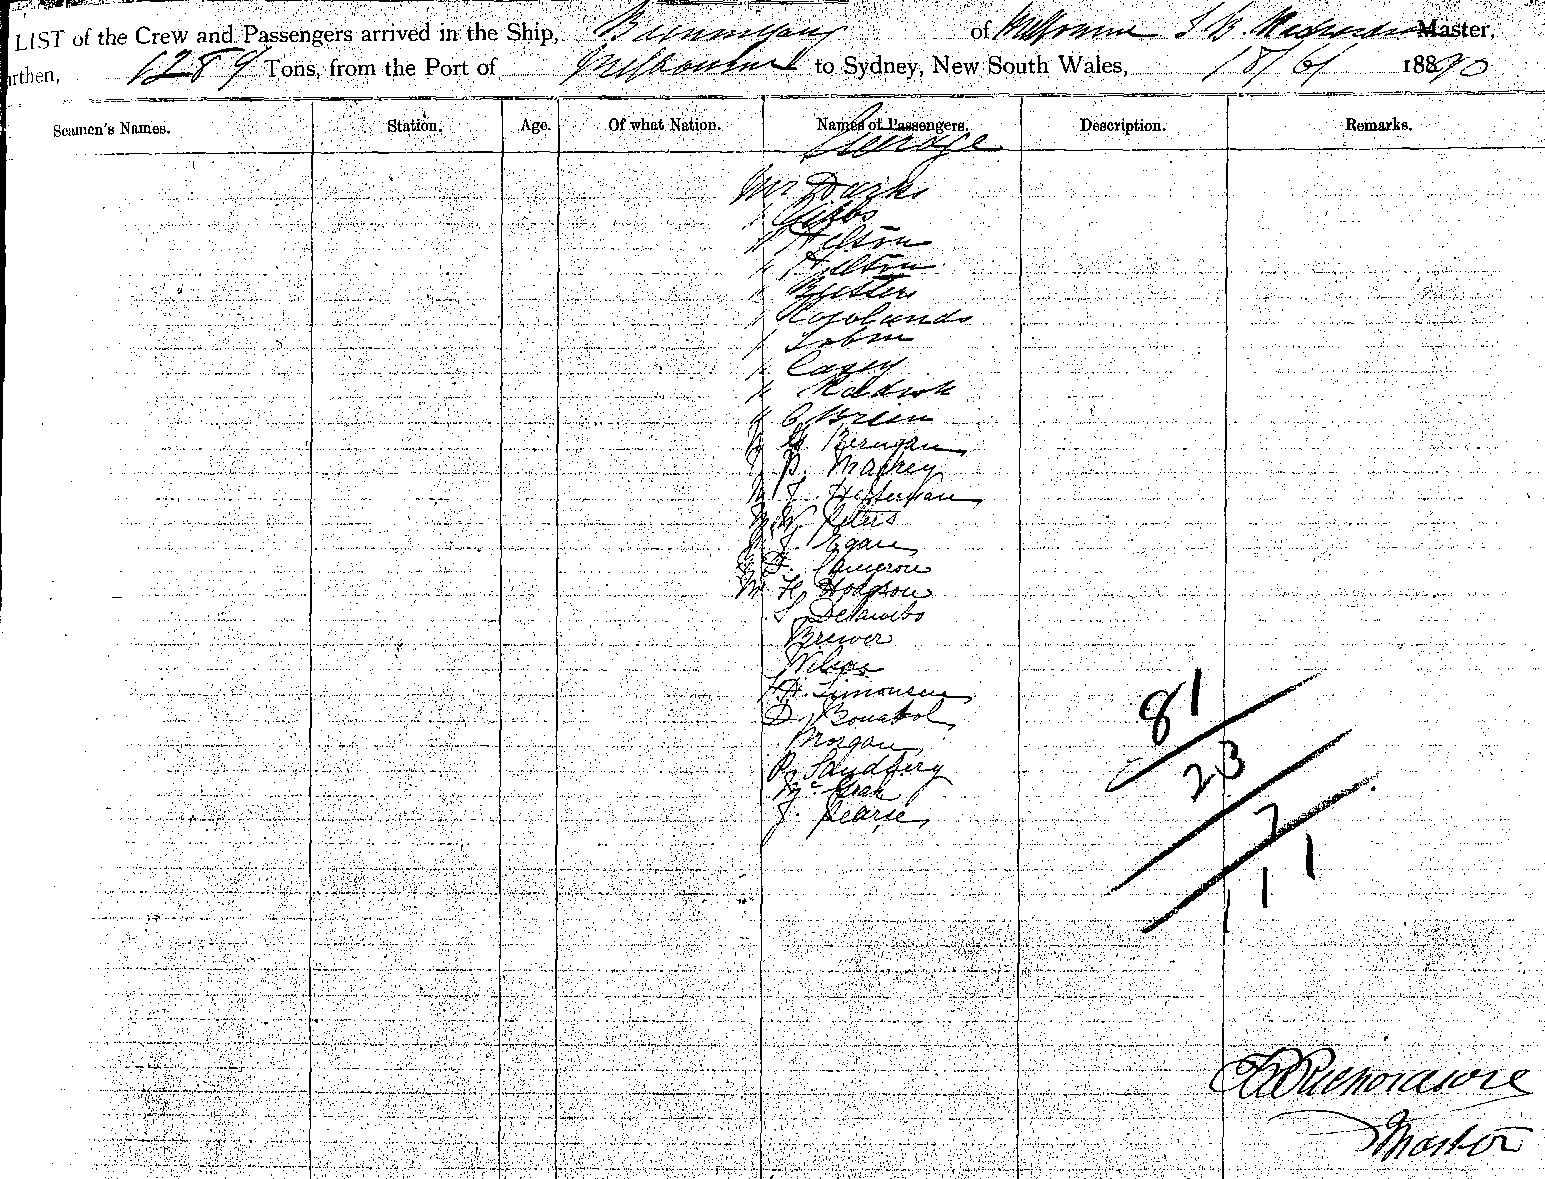 LIST of the Crew and Passengers arrived in the Ship, Burrumbeet of Melbourne Master,
rthen, 1289 Tons, from the Port of Melbourne to Sydney, New South Wales, 18/6/ 1890
Seamen's Names. Station. Age. Of what Nation. Names of Passengers. Description. Remarks.
Steerage
Mr Darks
" Gibbs
" Hilton
" Hilton
" Butters
" Rowlands
" Tobin
" Casey
"
" O'Brien
G. Berrigan
P. Mackey
M J. Heffernan
M W. Peters
J. Egan
D. Cameron
M H. Hodgson
Brewer
Wilson
H. Simonsen
D.
Morgan
P. Sandberg
Mc
J. Pearse
81
23
7
111
Master